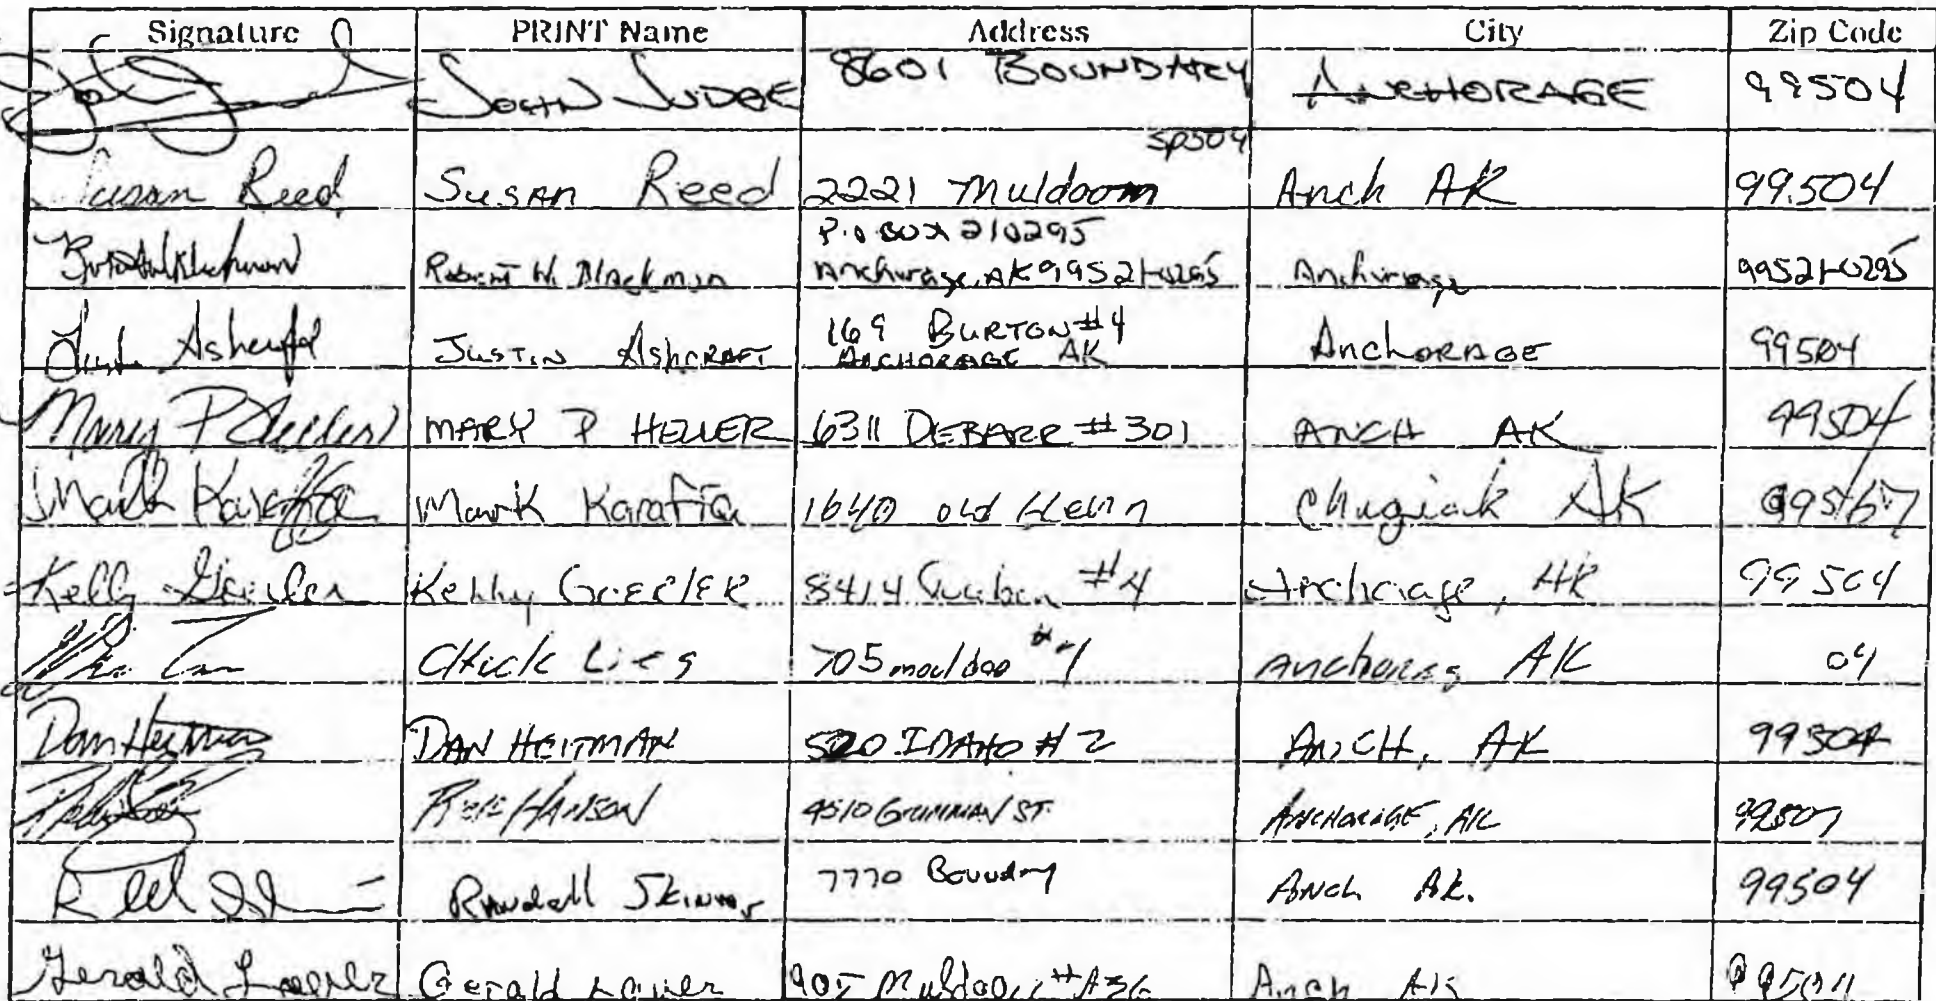 Signature PRINT Name Address City Zip Code
JOHN JUDGE 8601 BOUNDARY ANCHORAGE 99504
SP504
Susan Reed Susan Reed 2221 Muldoon Anch AK 99504
P.O BOX 210295
Robert W. Blackman Anchorage, AK 99521-0295 Anchorage 99521-0295
169 BURTON #4
Ashcraft JUSTIN AshCRAFT ANCHORAGE AK AnchORAGE 99504
Mary P MARY P HELLER 6311 DEBARR #301 ANCH AK 99504
Mark Karaffa Mark Karaffa 1640 old Glenn Chugiak AK 99567
Kelly Kelly 8414 #4 Anchorage, AK 99504
Chick 705 #1 AK 04
Dan Heitman DAN HEITMAN 520 IDAHO #2 ANCH, AK 99504
HANSON 4510 GRUMMAN ST. ANCHORAGE, AK 99507
Randall Skinner 7770 Boundry Anch AK. 99504
Gerald Gerald 905 Muldoon #A36 Anch AK 99504